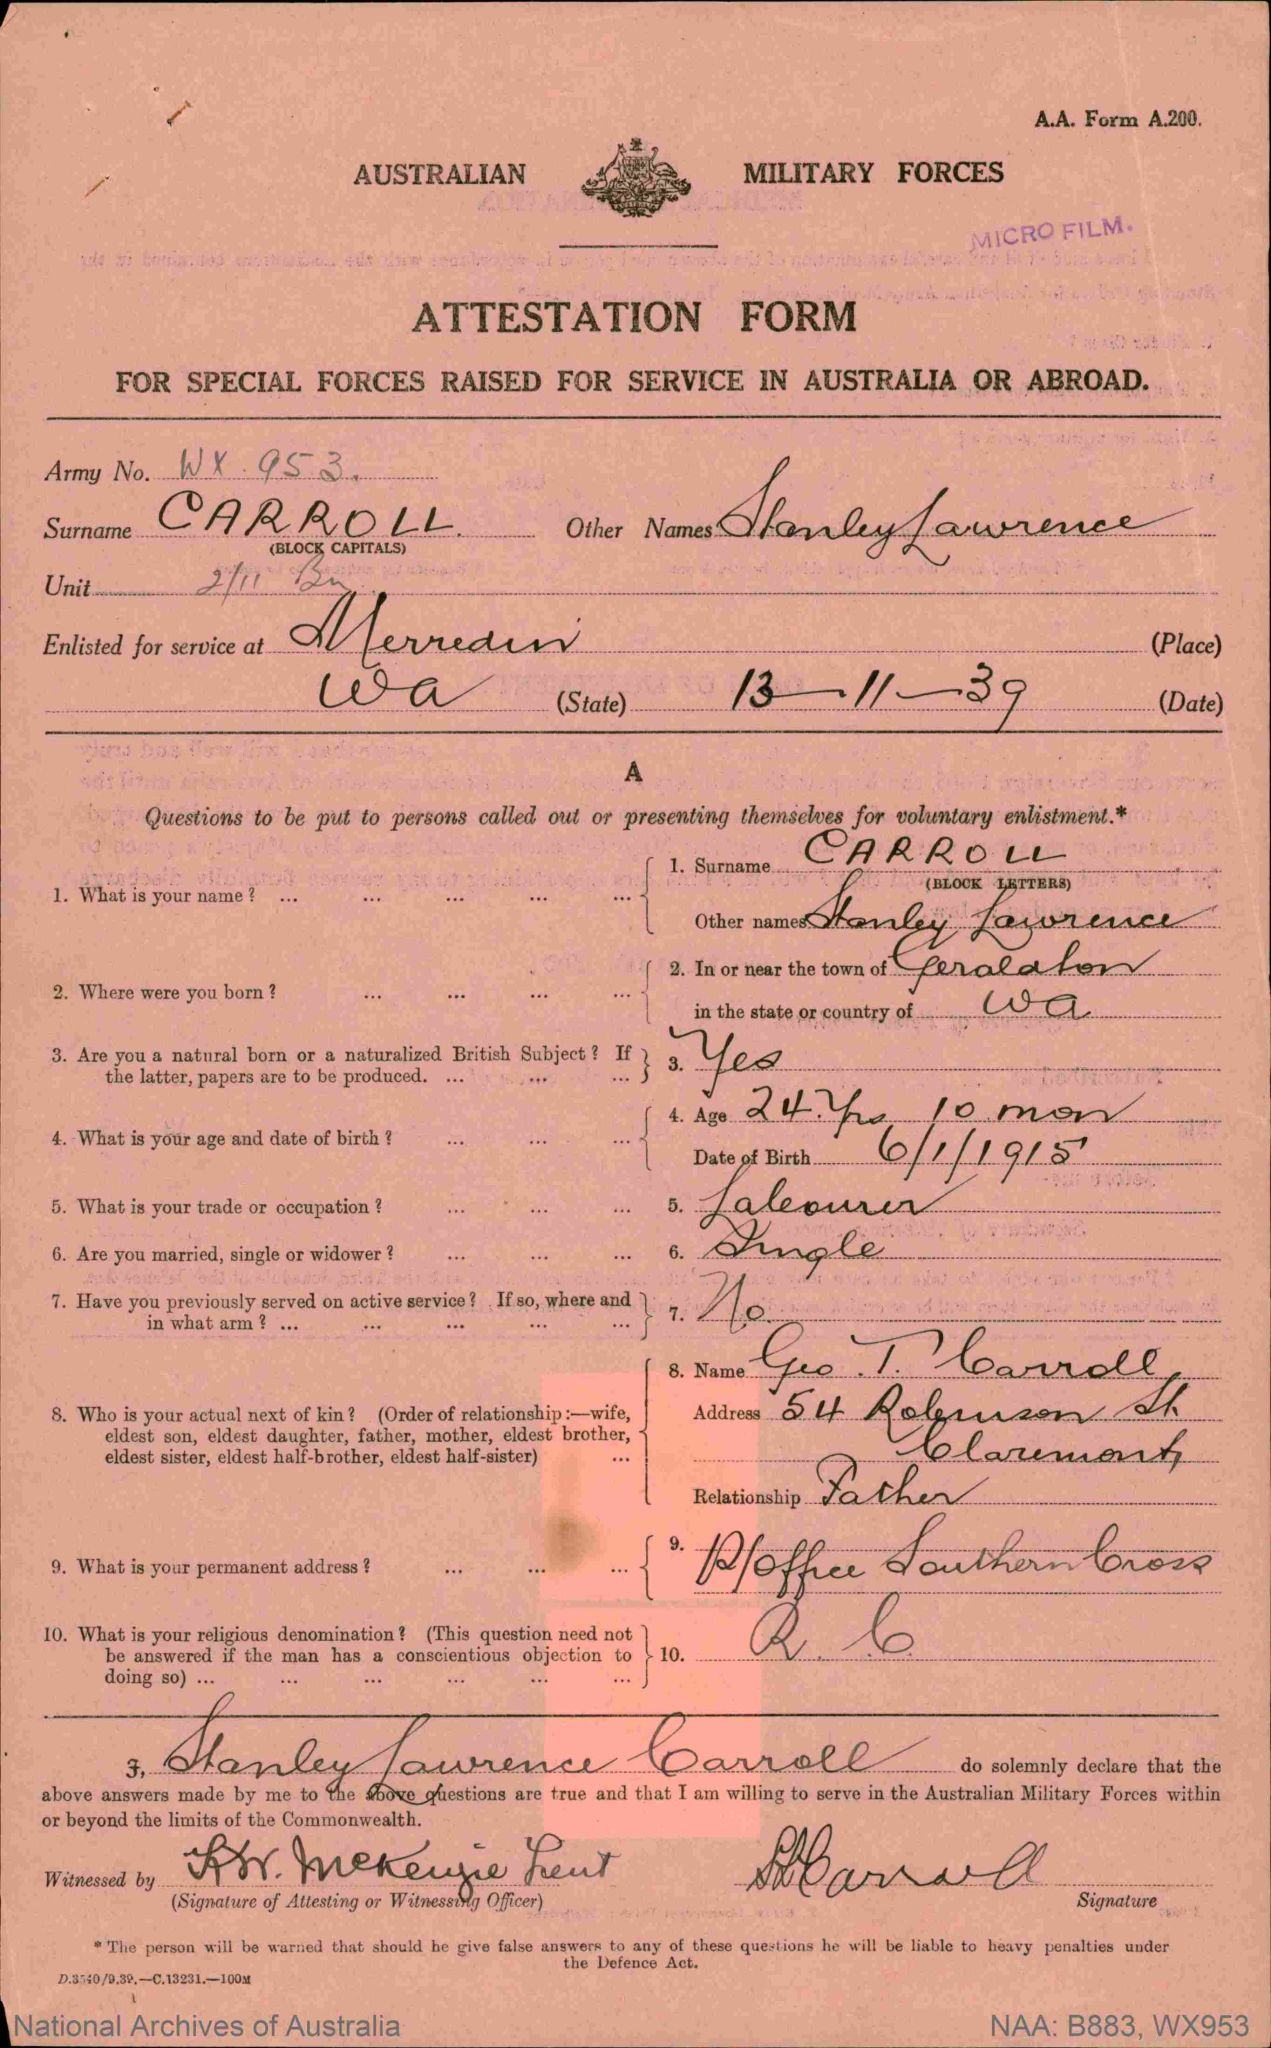 A.A. Form A.200.
AUSTRALIAN MILITARY FORCES
MICRO FILM.
ATTESTATION FORM
FOR SPECIAL FORCES RAISED FOR SERVICE IN AUSTRALIA OR ABROAD.
Army No. WX 953.
Surname CARROLL. Other Names Stanley Lawrence
(BLOCK CAPITALS)
Unit 2/11 Bn
Enlisted for service at Merredin (Place)
WA (State) 13-11-39 (Date)
A
Questions to be put to persons called out or presenting themselves for voluntary enlistment.*
1. What is your name? ... ... ... ... ... 1. Surname CARROLL
(BLOCK LETTERS)
Other names Stanley Lawrence
2. Where were you born? ... ... ... ... 2. In or near the town of Geraldton
in the state or country of WA
3. Are you a natural born or a naturalized British Subject? If the latter, papers are to be produced. ... ... ... 3. Yes
4. What is your age and date of birth? ... ... ... 4. Age 24 Yrs 10 mon
Date of Birth 6/1/1915
5. What is your trade or occupation? ... ... ... 5. Labourer
6. Are you married, single or widower? ... ... ... 6. Single
7. Have you previously served on active service? If so, where and in what arm? ... ... ... ... ... 7. No.
8. Who is your actual next of kin? (Order of relationship:—wife, eldest son, eldest daughter, father, mother, eldest brother, eldest sister, eldest half-brother, eldest half-sister) ... 8. Name Geo. T. Carroll,
Address 54 Robinson St
Claremont,
Relationship Father
9. What is your permanent address? ... ... ... 9. P/Office Southern Cross
10. What is your religious denomination? (This question need not be answered if the man has a conscientious objection to doing so) ... ... ... ... ... ... 10. R. C.
I, Stanley Lawrence Carroll do solemnly declare that the
above answers made by me to the above questions are true and that I am willing to serve in the Australian Military Forces within
or beyond the limits of the Commonwealth.
Witnessed by McKenzie Lieut S L Carroll
(Signature of Attesting or Witnessing Officer) Signature
* The person will be warned that should he give false answers to any of these questions he will be liable to heavy penalties under
the Defence Act.
D.3540/9.39.—C.13231.—100M
National Archives of Australia NAA: B883, WX953